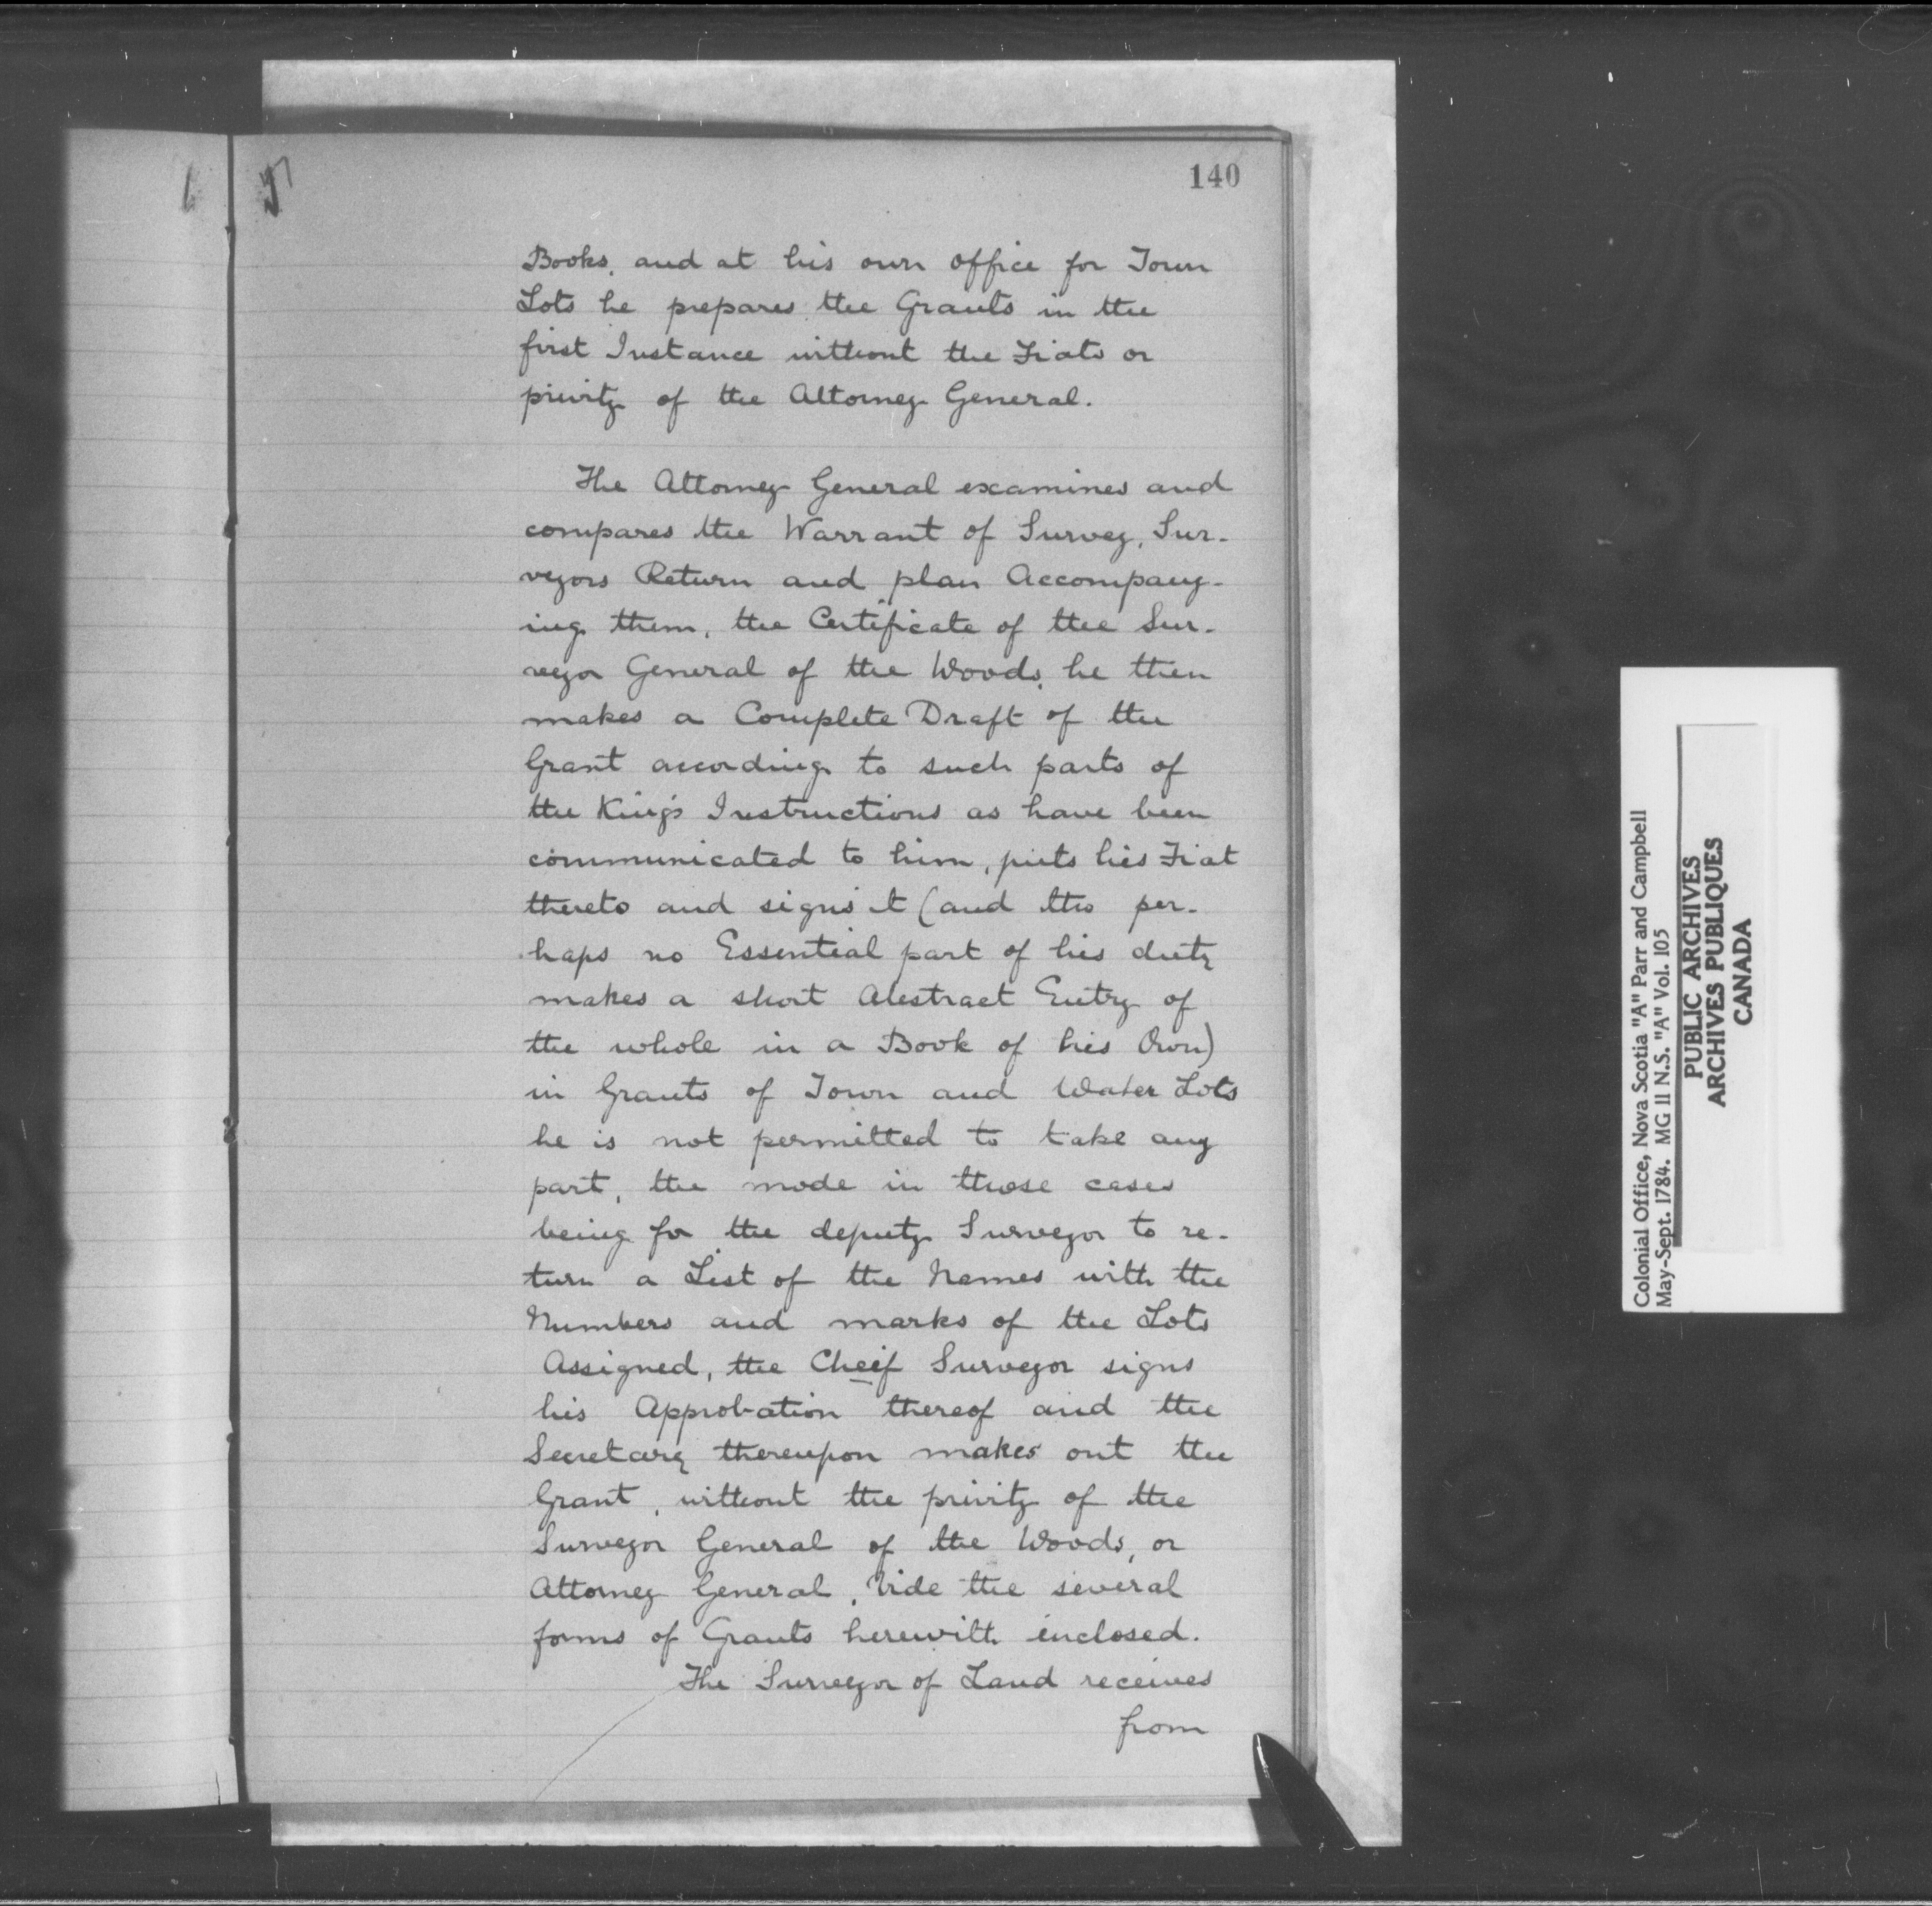 140
Books, and at his own office for Town
Lots he prepares the Grants in the
first Instance without the Fiats or
privity of the Attorney General.
The Attorney General examines and
compares the Warrant of Survey, Sur-
veyors Return and plan Accompany-
ing them, the Certificate of the Sur-
veyor General of the Woods, he then
makes a Complete Draft of the
Grant according to such parts of
the King's Instructions as have been
communicated to him, puts his Fiat
thereto and signs it (and tho per-
haps no Essential part of his duty
makes a short Abstract Entry of
the whole in a Book of his Own)
in Grants of Town and Water Lots
he is not permitted to take any
part, the mode in those cases
being for the deputy Surveyor to re-
turn a List of the Names with the
Numbers and marks of the Lots
Assigned, the Cheif Surveyor signs
his Approbation thereof and the
Secretary thereupon makes out the
Grant, without the privity of the
Surveyor General of the Woods, or
Attorney General, Vide the several
forms of Grants herewith enclosed.
The Surveyor of Land receives
from
Colonial Office, Nova Scotia "A" Parr and Campbell
May-Sept. 1784. MG 11 N.S. "A" Vol. 105
PUBLIC ARCHIVES
ARCHIVES PUBLIQUES
CANADA